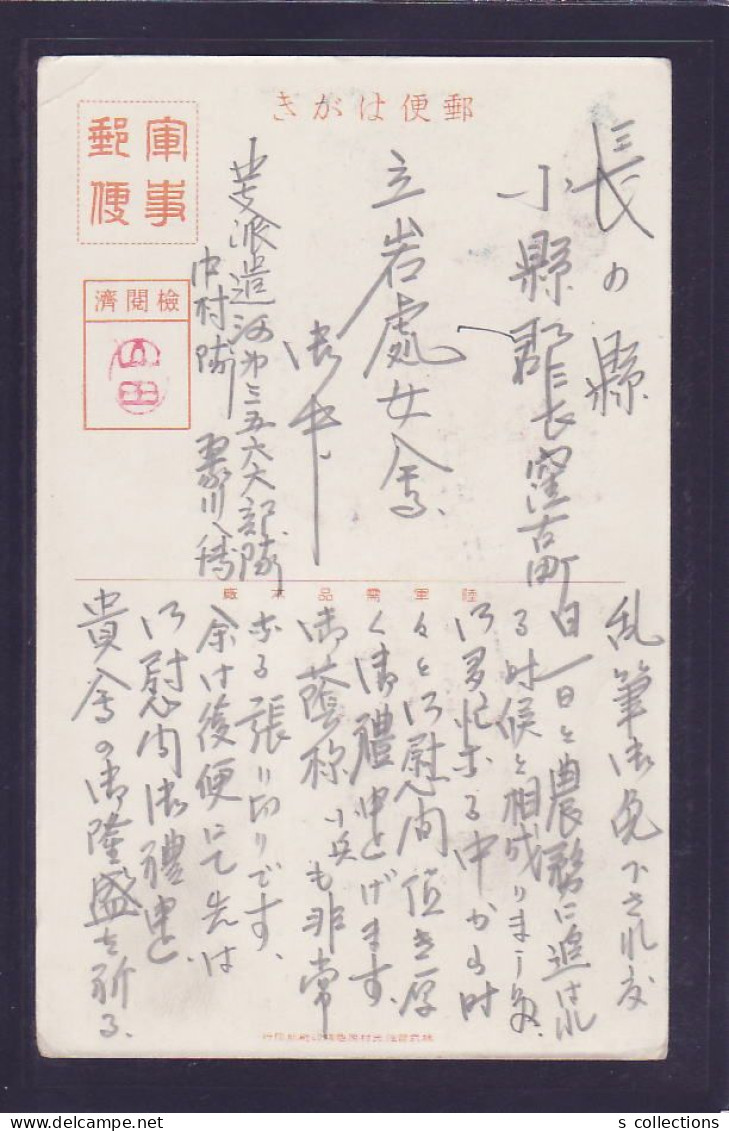 郵便はがき
軍事
郵便
檢閲濟
長の縣
小縣郡長窪古町
立岩處女會
御中
中支派遣河第三五六六部隊
中村隊
陸軍需品本廠
乱筆御免下され度
日一日と農務に追はれ
る時候と相成りました
御多忙なる中から時
々と御慰問頂き厚
く御禮申上げます。
御蔭様小兵も非常
なる張り切りです。
余は後便にて先は
御慰問御禮申上
貴會の御隆盛を祈る.
s collections